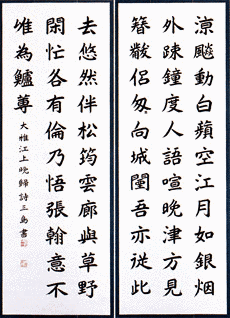 涼飈動白蘋空江月如銀烟
外疎鐘度人語喧晚津方見
簪黻侶匆向城闉吾亦從此
去悠然伴松筠雲廊與草野
閑忙各有倫乃悟張翰意不
唯為鱸蓴
大雅江上晚歸詩三島書